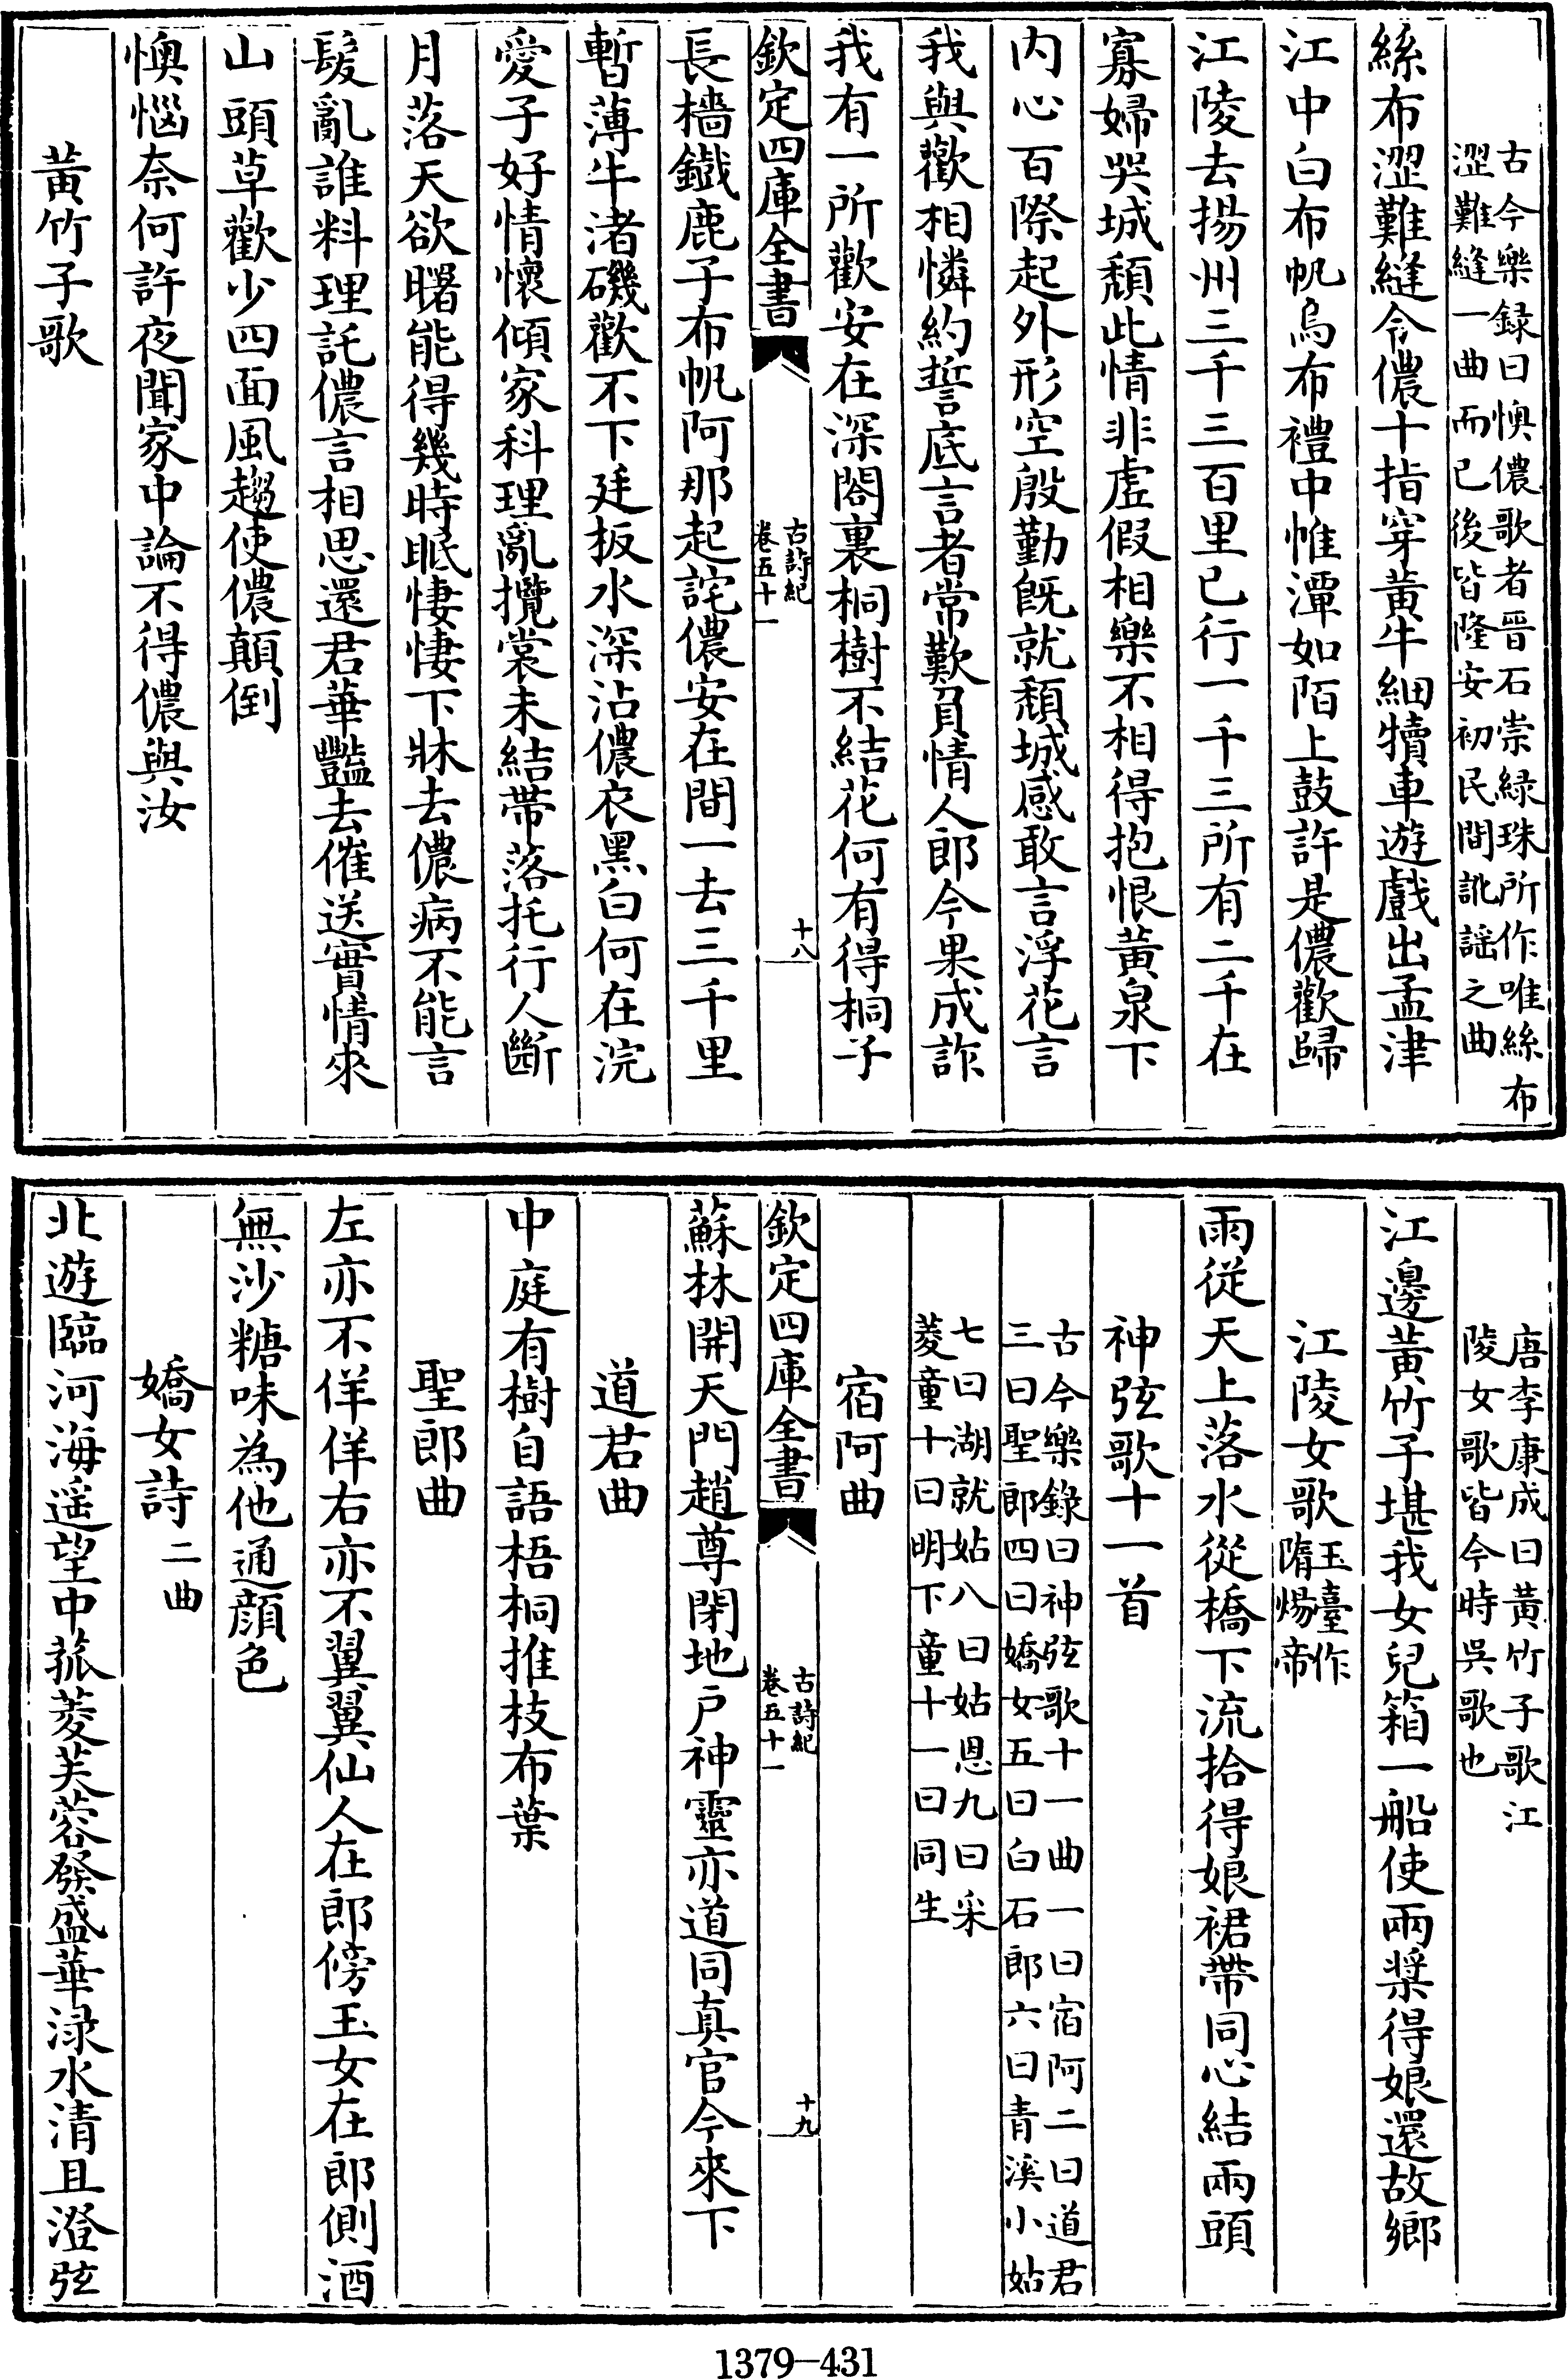 古今樂録曰懊儂歌者晉石崇緑珠所作唯絲布
澀難縫一曲而已後皆隆安初民間訛謡之曲
絲布澀難縫令儂十指穿黄牛細犢車遊戲出孟津
江中白布帆烏布禮中帷潭如陌上鼓許是儂歡歸
江陵去揚州三千三百里已行一千三所有二千在
寡婦哭城頽此情非虚假相樂不相得抱恨黄泉下
内心百際起外形空殷勤既就頽城感敢言浮花言
我與歡相憐約誓底言者常歎負情人郎今果成詐
我有一所歡安在深閣裏桐樹不結花何有得桐子
欽定四庫全書
古詩紀
卷五十一
十八
長檣鐵鹿子布帆阿那起詫儂安在間一去三千里
暫薄牛渚磯歡不下廷扳水深沾儂衣黑白何在浣
愛子好情懷傾家料理亂攬裳未結帶落托行人斷
月落天欲曙能得幾時眠悽悽下牀去儂病不能言
髮亂誰料理託儂言相思還君華豔去催送實情來
山頭草歡少四面風趨使儂顛倒
懊惱奈何許夜聞家中論不得儂與汝
黄竹子歌
唐李康成曰黄竹子歌江
陵女歌皆今時吳歌也
江邊黄竹子堪我女兒箱一船使兩槳得娘還故鄉
江陵女歌
玉臺作
隋煬帝
雨從天上落水從橋下流拾得娘裙帶同心結兩頭
神弦歌十一首
古今樂錄曰神弦歌十一曲一曰宿阿二曰道君
三曰聖郎四曰嬌女五曰白石郎六曰青溪小姑
七曰湖就姑八曰姑恩九曰采
菱童十曰明下童十一曰同生
宿阿曲
欽定四庫全書
古詩紀
卷五十一
十九
蘇林開天門趙尊閉地户神靈亦道同真官今來下
道君曲
中庭有樹自語梧桐推枝布葉
聖郎曲
左亦不佯佯右亦不翼翼仙人在郎傍玉女在郎側酒
無沙糖味為他通顔色
嬌女詩
二曲
北遊臨河海遥望中菰菱芙蓉發盛華渌水清且澄弦
1379—431